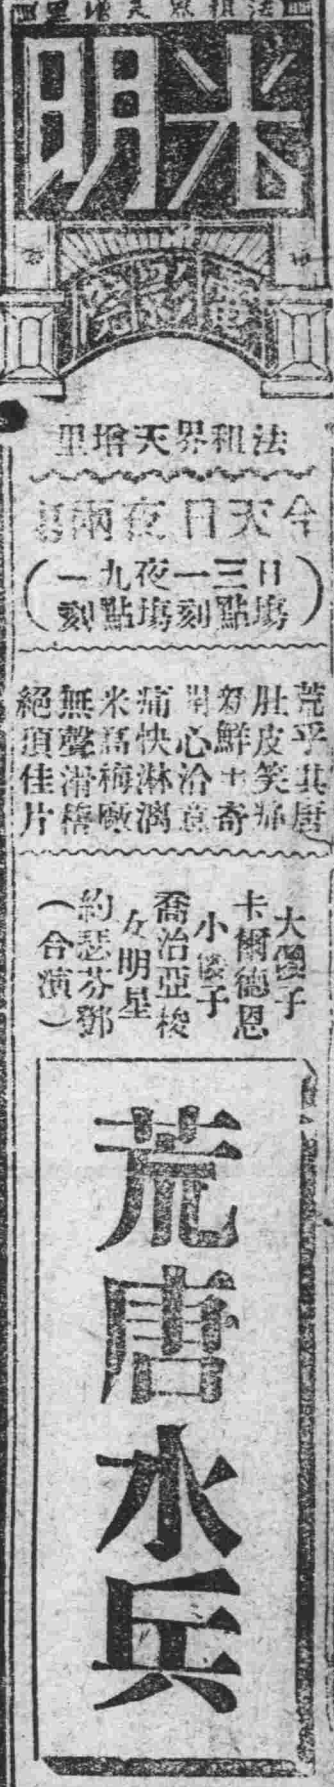 法租界天增里
光明
電影院
法租界天增里
今天日夜兩塲
（日塲三點一刻夜塲九點一刻）
荒乎其唐
肚皮笑痛
新鮮出奇
開心洽意
痛快淋漓
米高梅廠
無聲滑稽
絕頂佳片
大傻子
卡爾德恩
小傻子
喬治亞梭
女明星
約瑟芬鄧
（合演）
荒唐水兵